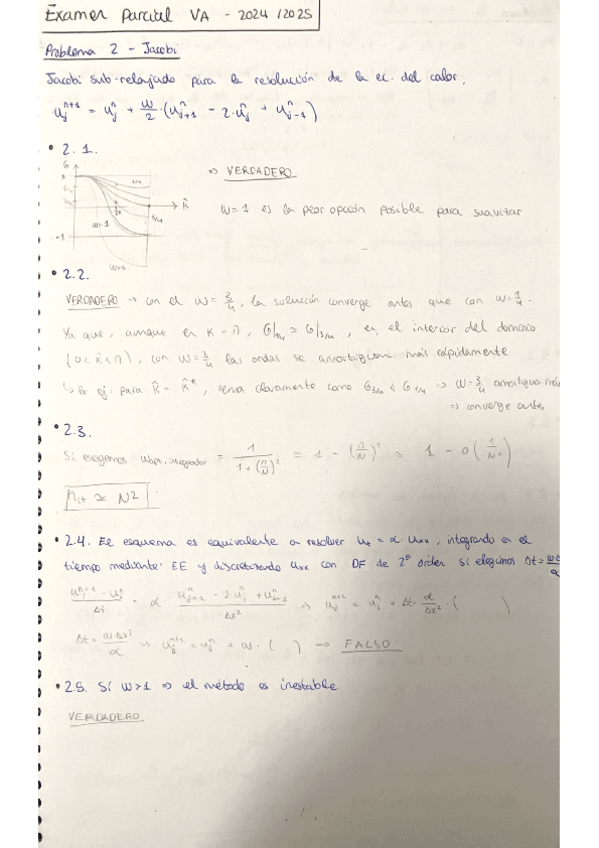 Examen Parcial VA - 2024/2025
Problema 2 - Jacobi
Jacobi sub-relajado para la resolución de la ec. del calor.
u_j^{n+1} = u_j^n + w/2 · (u_{j+1}^n - 2·u_j^n + u_{j-1}^n)
• 2.1.
G
⇒ VERDADERO
w=1 es la peor opción posible para suavizar
w=1
-1
w>1
• 2.2.
VERDADERO → con el w = 3/4, la solución converge antes que con w = 1/4.
Ya que, aunque en K = π, G_{1/4} ≃ G_{3/4}, en el interior del dominio
(0<k<π), con w = 3/4 las ondas se amortiguan más rápidamente
↳ Por ej: para k̂ = k̂*, vemos claramente como G_{3/4} < G_{1/4} ⇒ w = 3/4 amortigua más
⇒ converge antes
• 2.3.
Si escogemos w_{opt, integrador} = 1/(1+(π/N)²) ≃ 1 - (π/N)² ≃ 1 - O(1/N²)
n_{it} ≃ N²
• 2.4. El esquema es equivalente a resolver u_t = α u_{xx}, integrando en el
tiempo mediante EE y discretizando u_{xx} con DF de 2º orden si elegimos Δt =
(u_j^{n+1} - u_j^n)/Δt = α · (u_{j+1}^n - 2·u_j^n + u_{j-1}^n)/Δx² ⇒ u_j^{n+1} = u_j^n + Δt · α/Δx² · ( )
Δt = wΔx²/α ⇒ u_j^{n+1} = u_j^n + w · ( ) → FALSO
• 2.5. Si w>1 ⇒ el método es inestable
VERDADERO